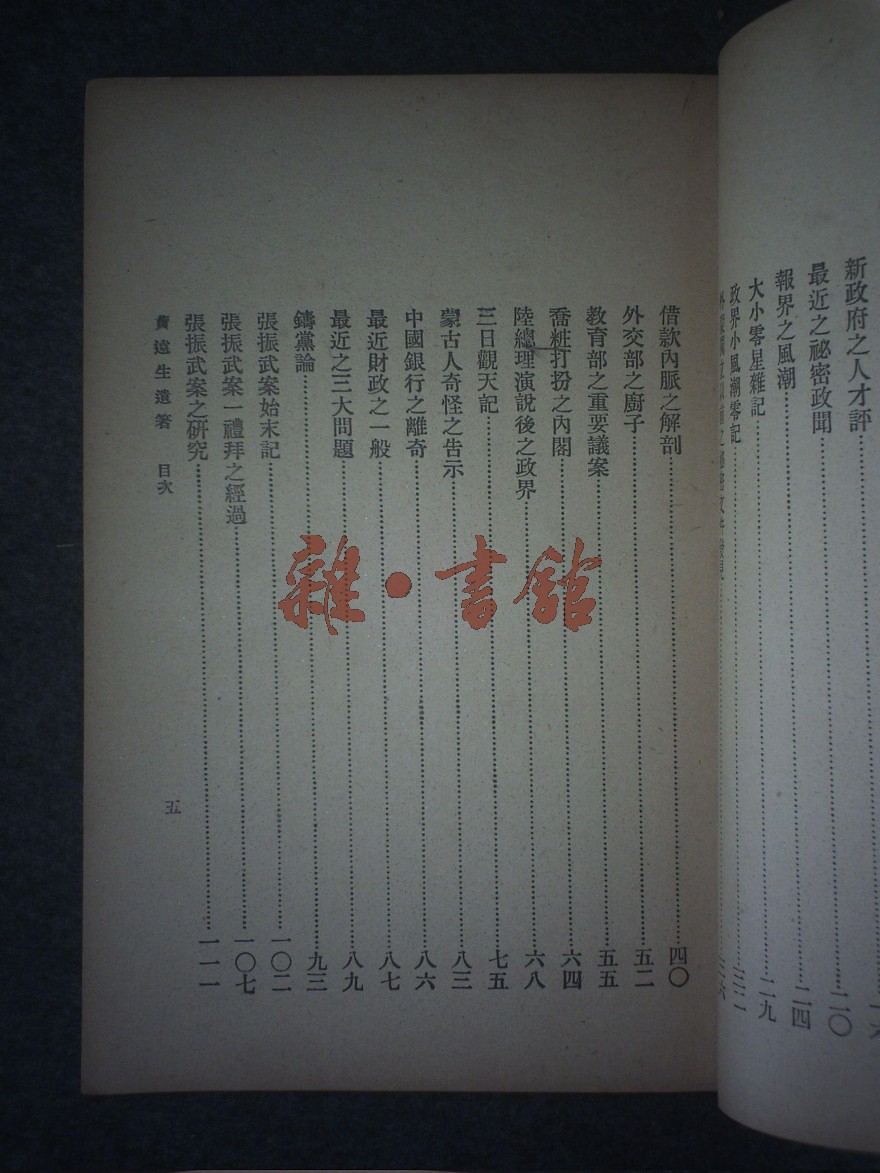 新政府之人才評
最近之祕密政聞 二〇
報界之風潮 二四
大小零星雜記 二九
政界小風潮零記 三二
借款內脈之解剖 四〇
外交部之廚子 五二
教育部之重要議案 五五
喬粧打扮之內閣 六四
陸總理演說後之政界 六八
三日觀天記 七五
蒙古人奇怪之告示 八三
中國銀行之離奇 八六
最近財政之一般 八七
最近之三大問題 八九
鑄黨論 九三
張振武案始末記 一〇二
張振武案一禮拜之經過 一〇七
張振武案之研究 一一一
黃遠生遺著 目次
五
雜·書館